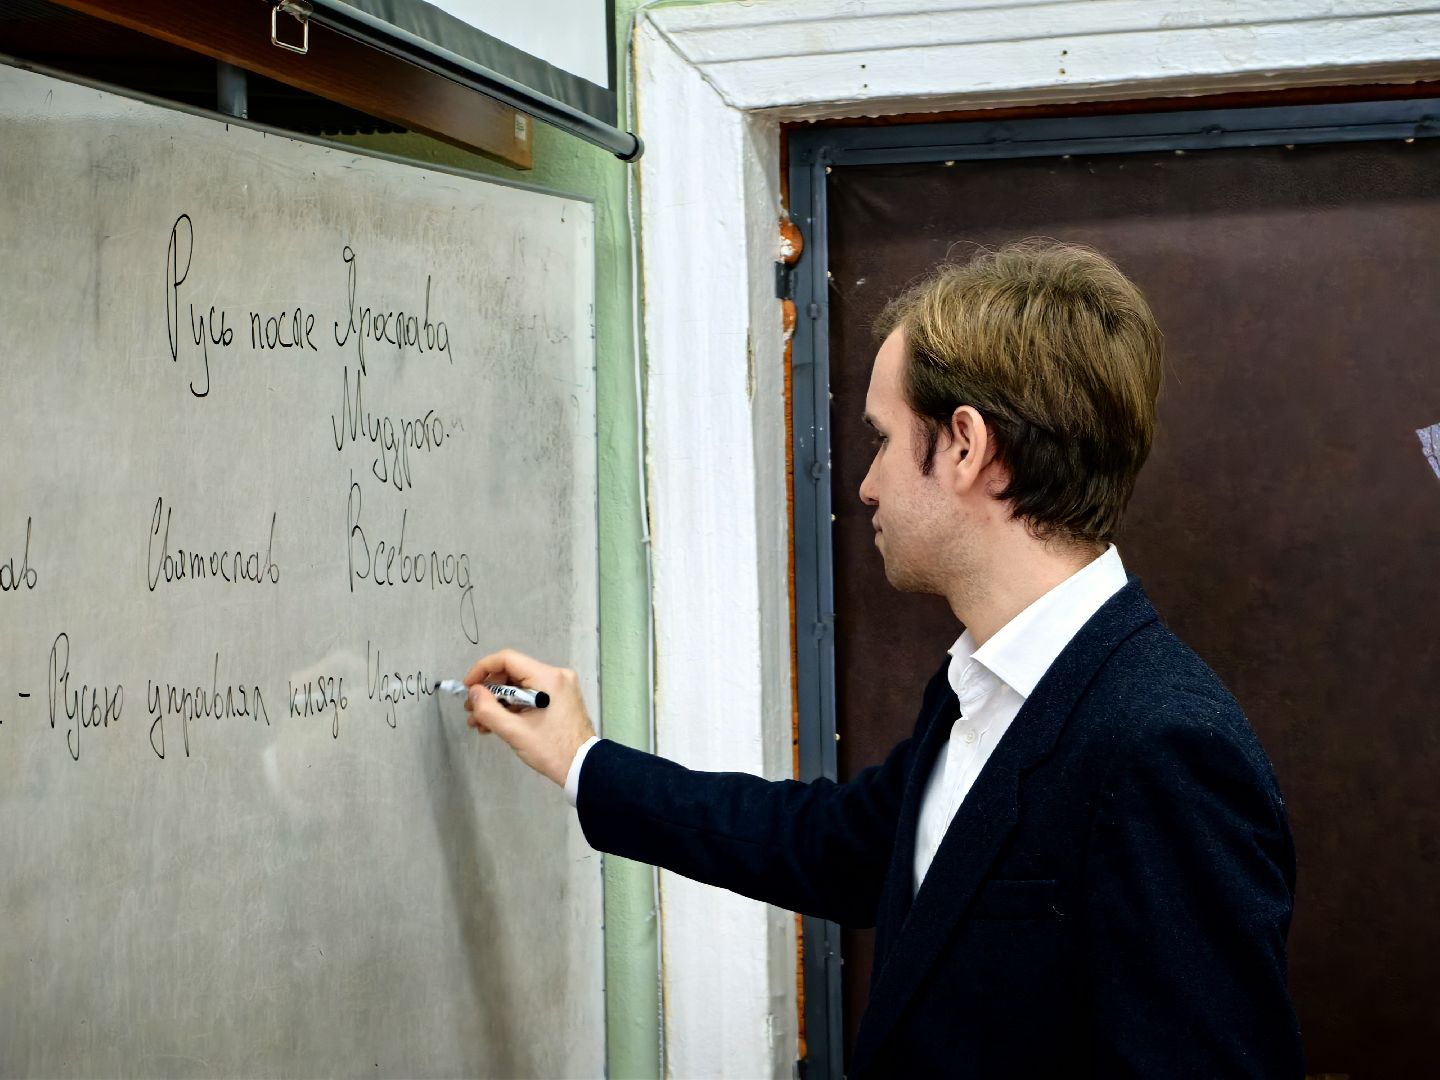 Русь после Ярослава
Мудрого.
ав Святослав Всеволод
. - Русью управлял князь Изясл
RKER